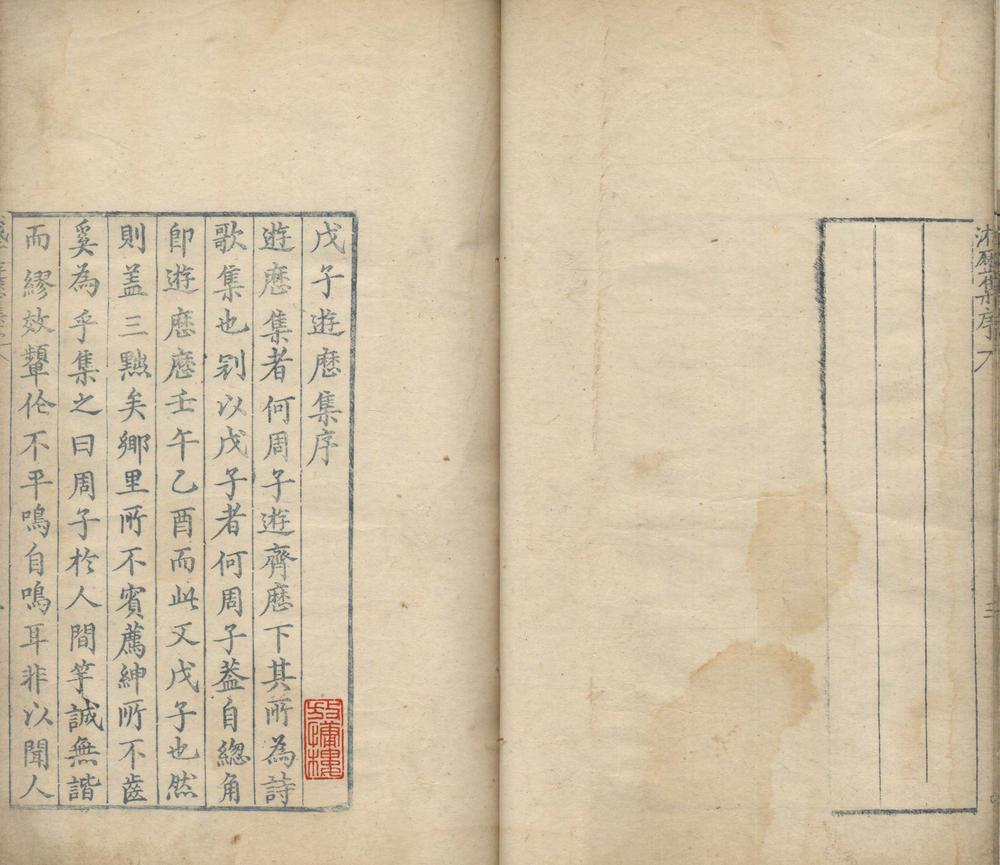 集序
戊子遊歷集序
遊歷集者何周子遊齊歷下其所為詩
歌集也刋以戊子者何周子葢自緫角
即遊歷歷壬午乙酉而此又戊子也然
則盖三㸃矣鄉里所不賓薦紳所不齒
奚為乎集之曰周子於人間竽誠無諧
而繆效顰伧不平鳴自鳴耳非以聞人